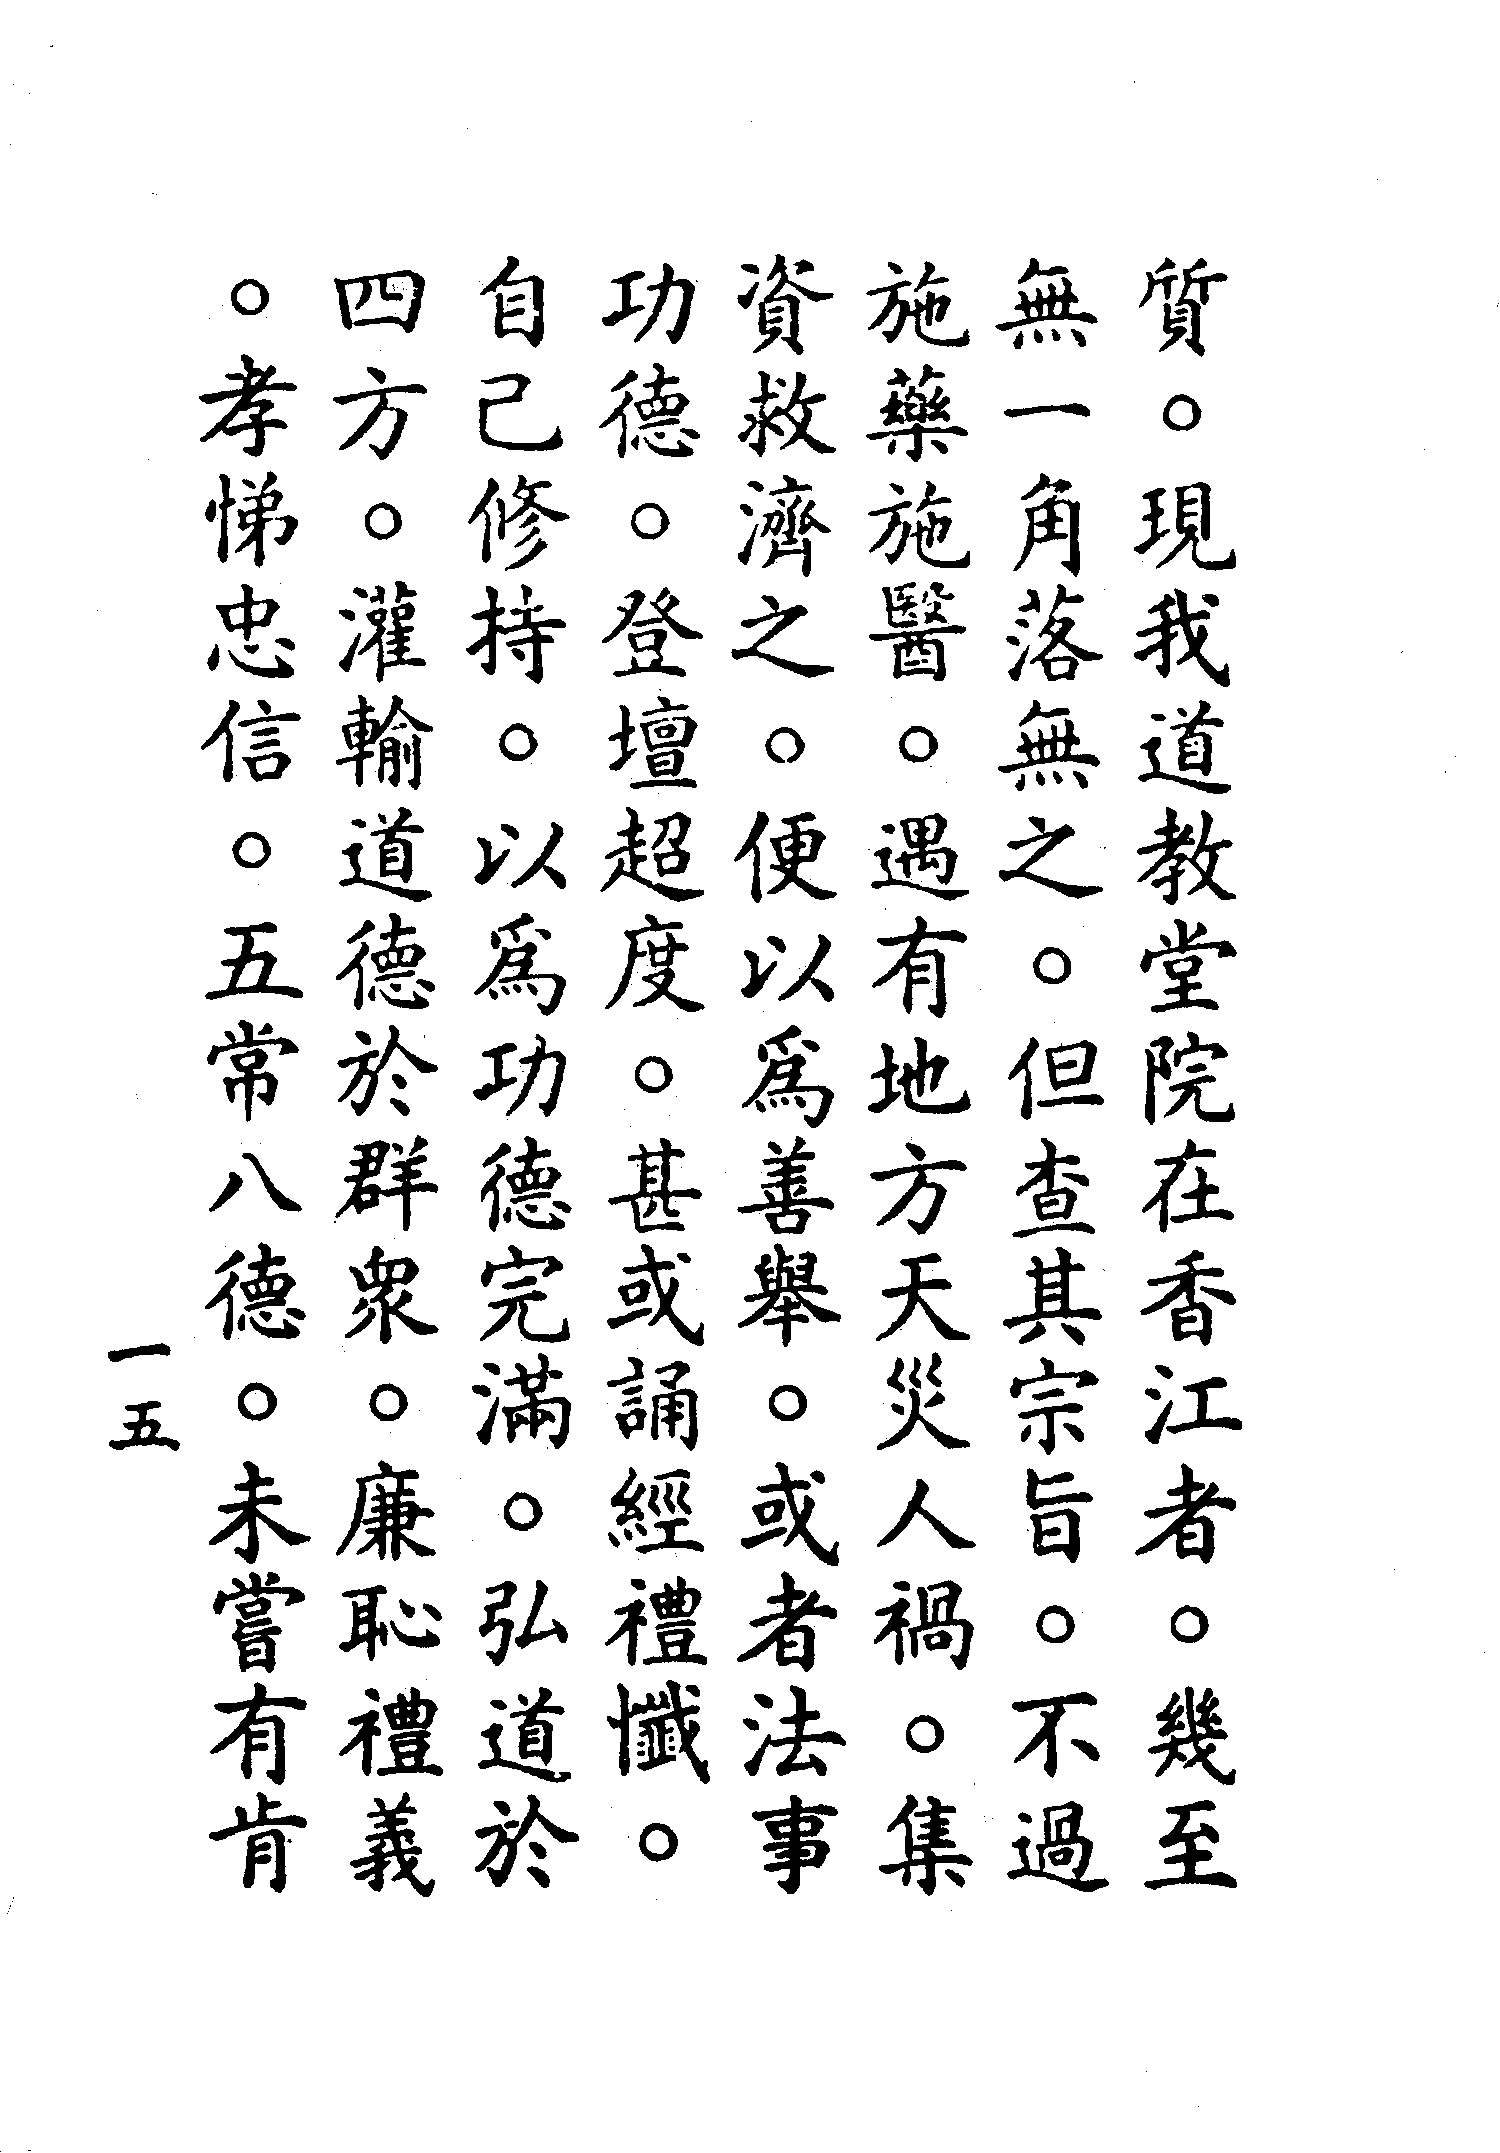 質。現我道教堂院在香江者。幾至
無一角落無之。但查其宗旨。不過
施藥施醫。遇有地方天災人禍。集
資救濟之。便以爲善舉。或者法事
功德。登壇超度。甚或誦經禮懺。
自己修持。以爲功德完滿。弘道於
四方。灌輸道德於群衆。廉恥禮義
。孝悌忠信。五常八德。未嘗有肯
一五